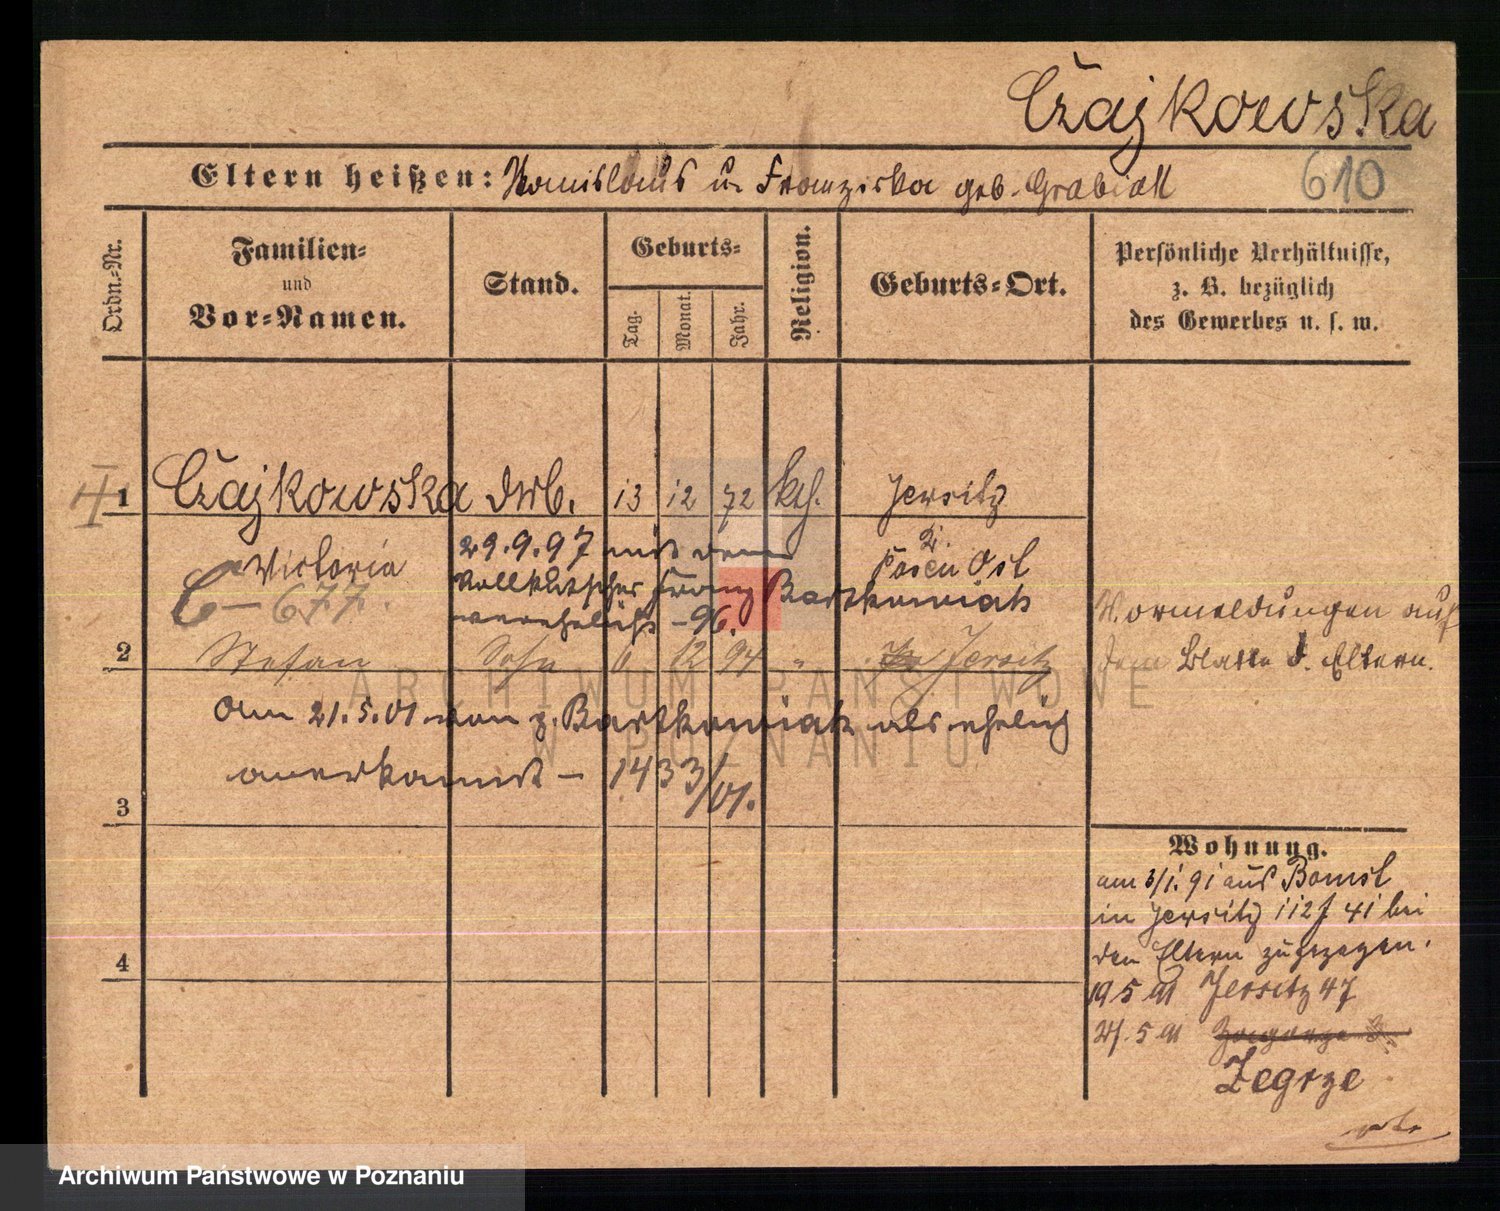 Czajkowska
Eltern heißen: Stanislaus u. Franziska geb. Grabiak
610
Ordn.-Nr.
Familien-
und
Vor-Namen.
Stand.
Geburts-
Tag.
Monat.
Jahr.
Religion.
Geburts-Ort.
Persönliche Verhältnisse,
z. B. bezüglich
des Gewerbes u. s. w.
1 Czajkowska 13 12 72 kth. Jersitz
Victoria
29.9.97 mit dem
Posen Ost
Franz Bartkowiak
verehelicht - 96.
C - 677.
Vormeldungen auf
dem Blatte d. Eltern.
2 Stefan Sohn 12 94 " Jersitz
am 21.5.01 von z. Bartkowiak als ehelich
anerkannt - 1433/01.
3
4
Wohnung.
am 3/1. 91 aus Bomst
in Jersitz 41 bei
den Eltern zugezogen.
19 5 91 Jersitz 47
5 91
Zegrze
ARCHIWUM PAŃSTWOWE
W POZNANIU
Archiwum Państwowe w Poznaniu